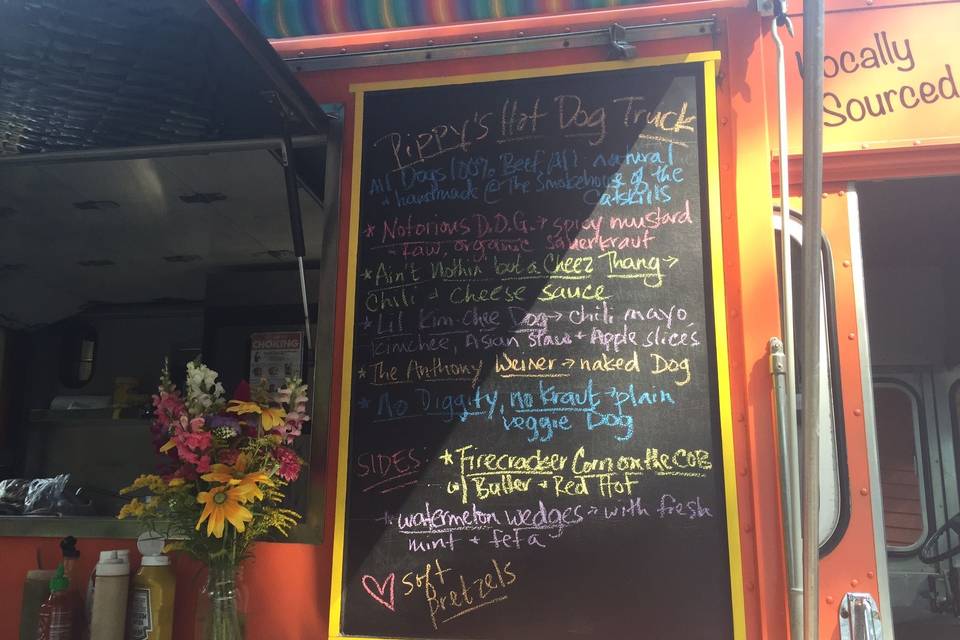 Pippy's Hot Dog Truck
All Dogs 100% Beef, All natural
+ handmade @ The Smokehouse of the
Catskills
* Notorious D.O.G. → spicy mustard
+ raw, organic sauerkraut
* Ain't Nothin but a Cheez Thang →
Chili + cheese sauce
* Lil Kim-Chee Dog → chili mayo
Kimchee, Asian slaw + Apple slices
* The Anthony Weiner → naked Dog
* No Diggity, no kraut → plain
veggie Dog
SIDES: * Firecracker Corn on the COB
w/ Butter + Red Hot
* watermelon wedges → with fresh
mint + feta
♡ soft
Pretzels
Locally
Sourced
CHOKING